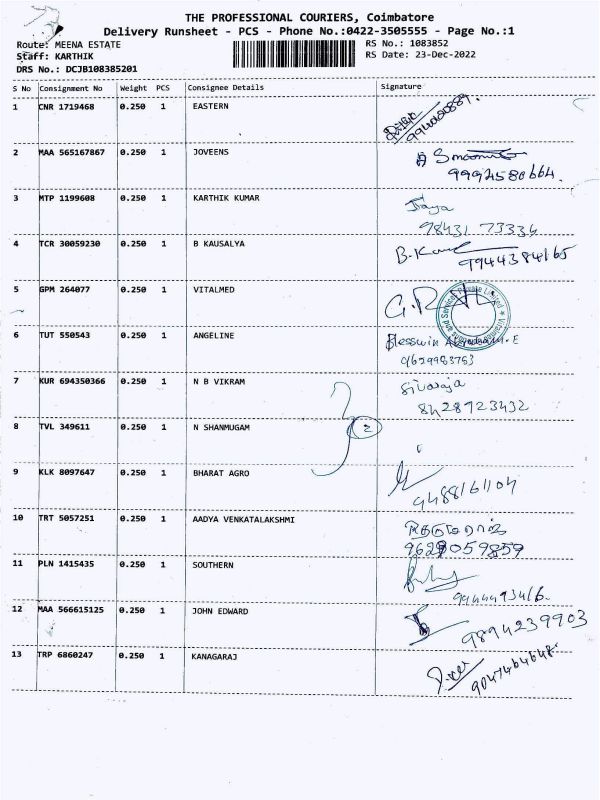 THE PROFESSIONAL COURIERS, Coimbatore
Delivery Runsheet - PCS - Phone No.:0422-3505555 - Page No.:1
Route: MEENA ESTATE RS No.: 1083852
Staff: KARTHIK RS Date: 23-Dec-2022
DRS No.: DCJB108385201
S No Consignment No Weight PCS Consignee Details Signature
1 CNR 1719468 0.250 1 EASTERN
2 MAA 565167867 0.250 1 JOVEENS
9994580664.
3 MTP 1199608 0.250 1 KARTHIK KUMAR Jaya
98431 73334
4 TCR 30059230 0.250 1 B KAUSALYA
9944384165
5 GPM 264077 0.250 1 VITALMED
6 TUT 550543 0.250 1 ANGELINE
9629983763
7 KUR 694350366 0.250 1 N B VIKRAM Sivaraja
8428723432
8 TVL 349611 0.250 1 N SHANMUGAM 2
9 KLK 8097647 0.250 1 BHARAT AGRO
9488161104
10 TRT 5057251 0.250 1 AADYA VENKATALAKSHMI
9629059859
11 PLN 1415435 0.250 1 SOUTHERN
9944493416.
12 MAA 566615125 0.250 1 JOHN EDWARD
9894239903
13 TRP 6860247 0.250 1 KANAGARAJ
9047464648.